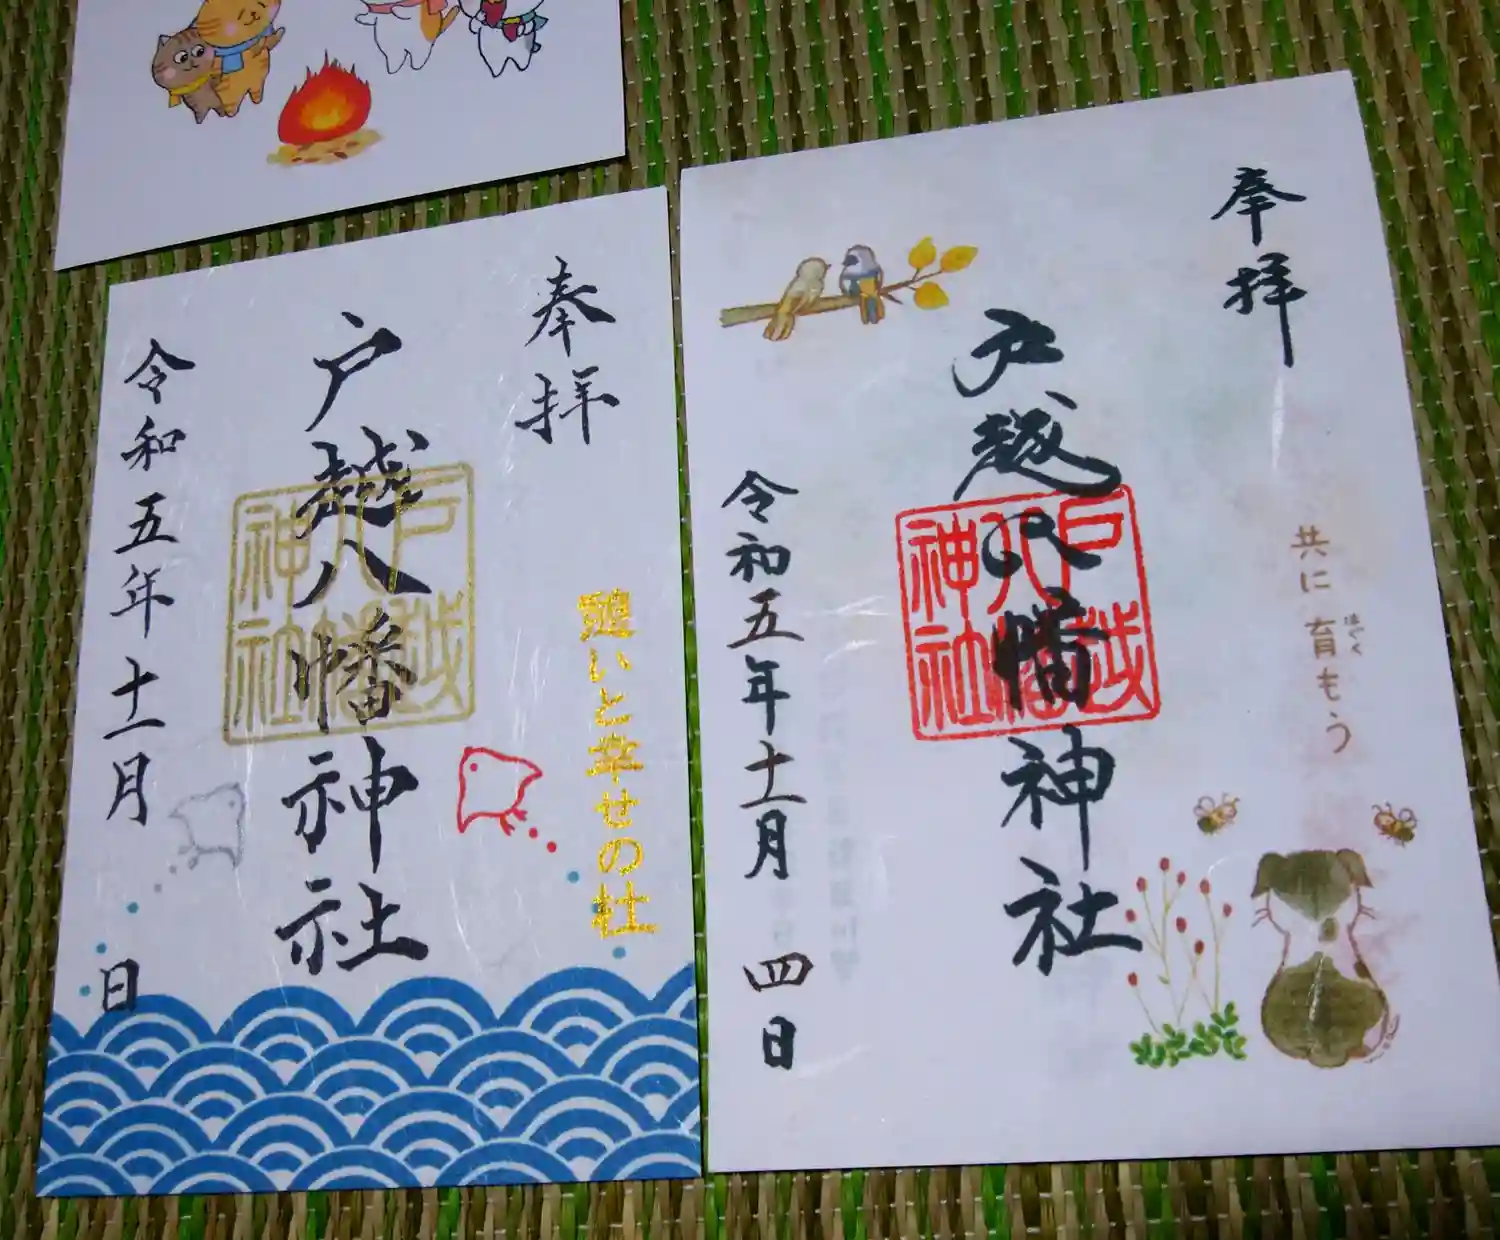 奉拝
戸越八幡神社
戸越八幡神社
憩いと幸せの杜
令和五年十一月 日
奉拝
戸越八幡神社
戸越八幡神社
共に育もう
はぐく
令和五年十一月四日